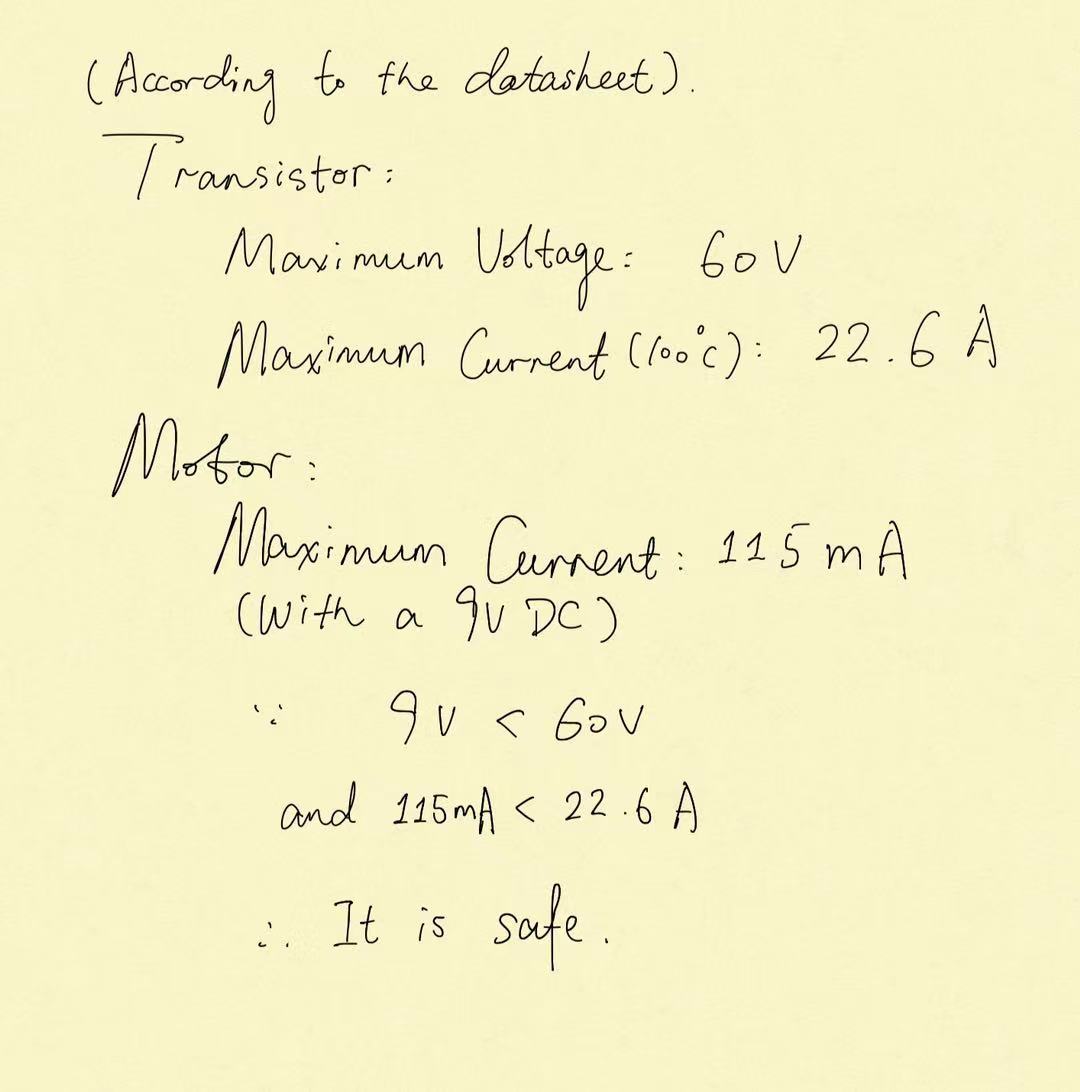 (According to the datasheet).
Transistor:
Maximum Voltage: 60V
Maximum Current (100°C): 22.6 A
Motor:
Maximum Current: 115 mA
(With a 9V DC)
∵ 9V < 60V
and 115mA < 22.6 A
∴ It is safe.